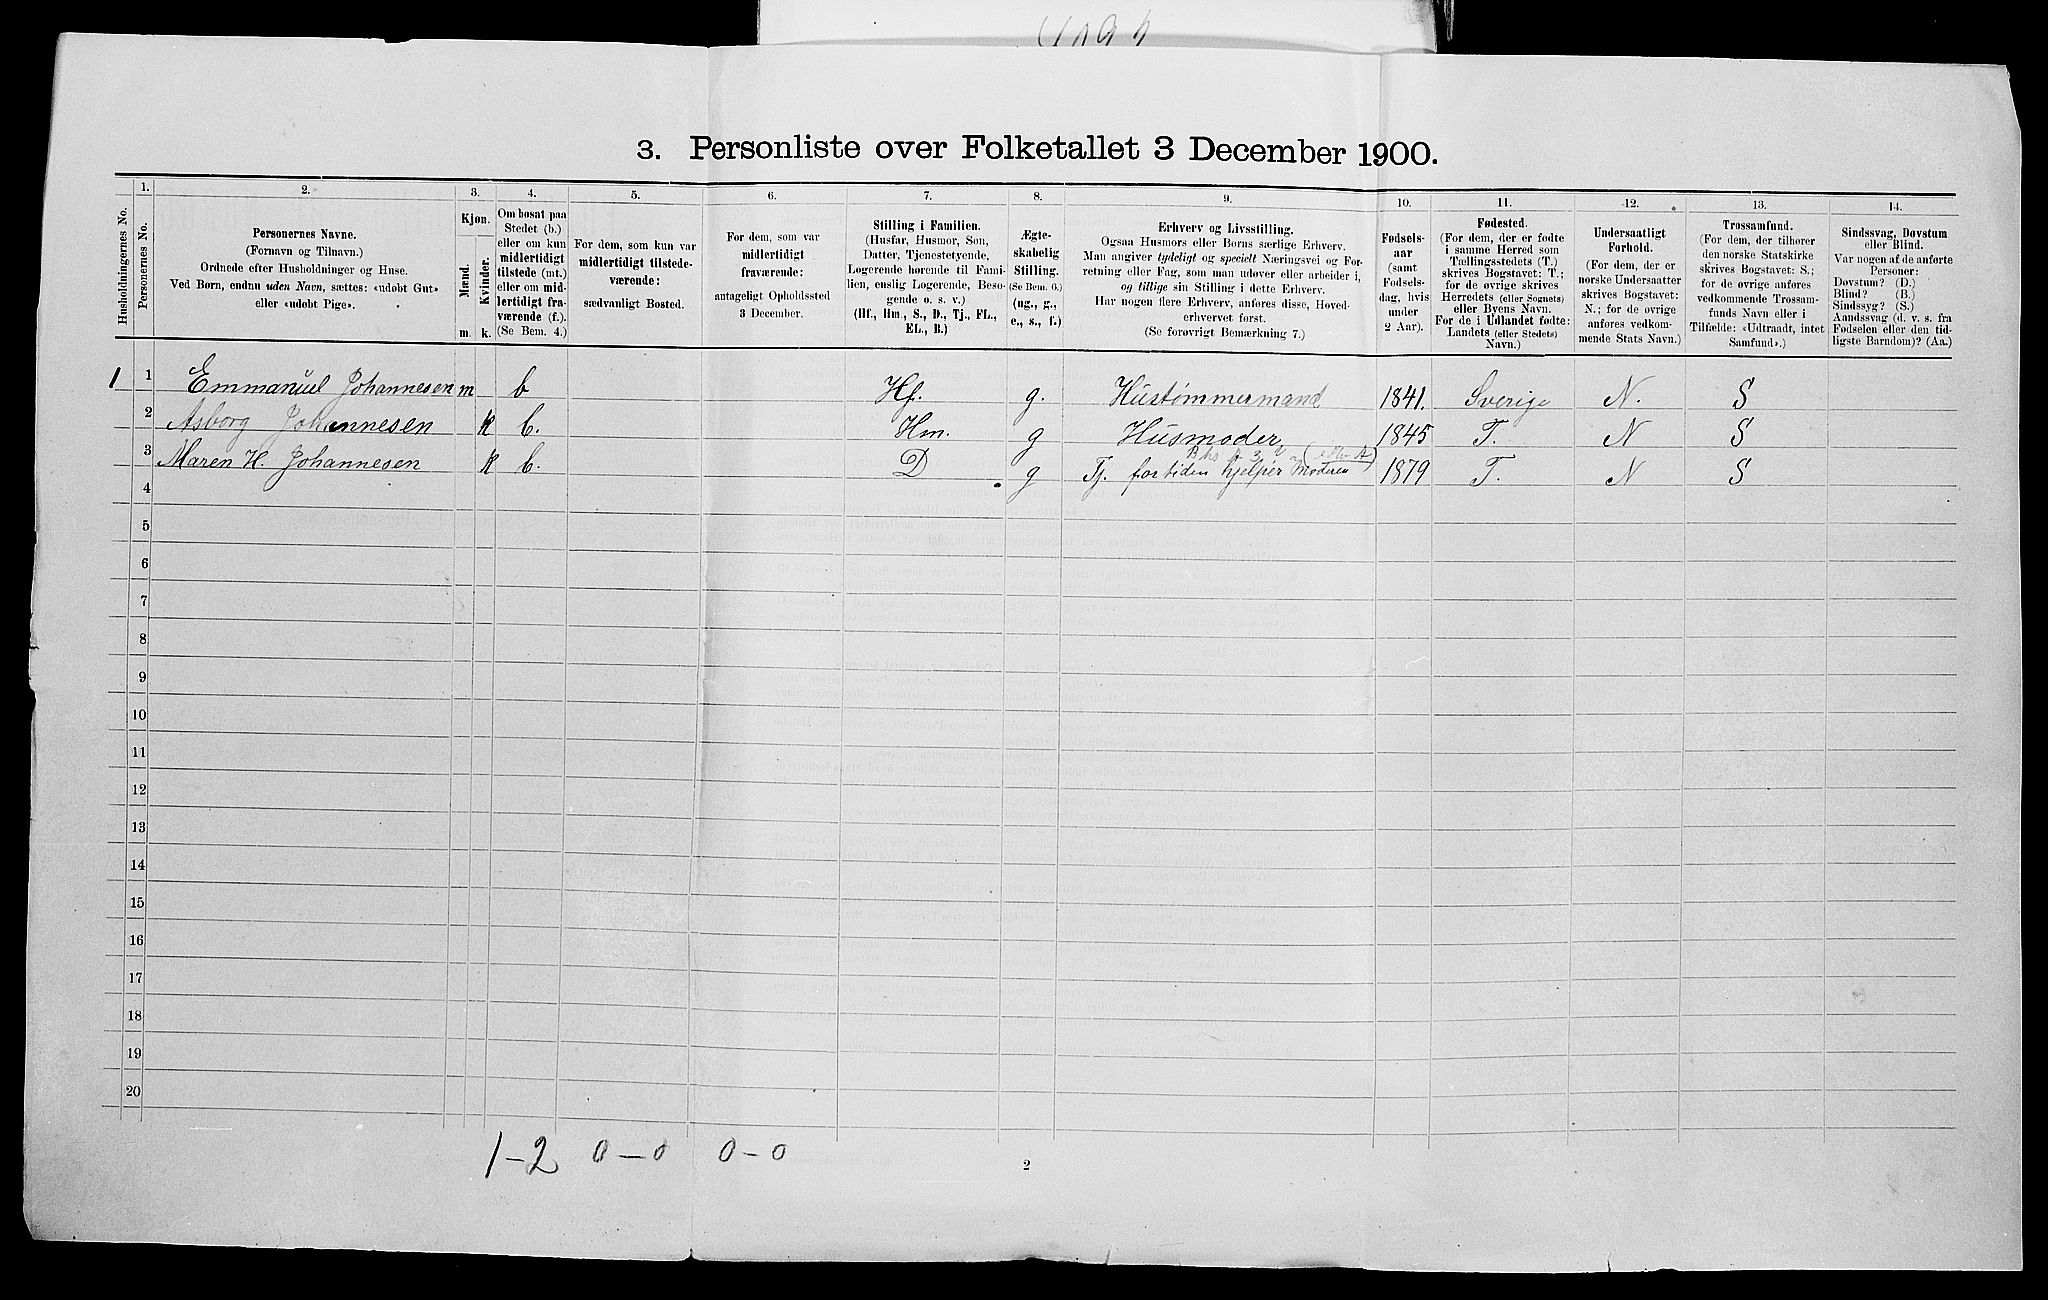 3. Personliste over Folketallet 3 December 1900.
1. 2. 3. 4. 5. 6. 7. 8. 9. 10. 11. 12. 13. 14.
Husholdningernes No.
Personernes No.
Personernes Navne.
(Fornavn og Tilnavn.)
Ordnede efter Husholdninger og Huse.
Ved Børn, endnu uden Navn, sættes: «udøbt Gut»
eller «udøbt Pige».
Kjøn.
Mænd.
Kvinder.
m. k.
Om bosat paa
Stedet (b.)
eller om kun
midlertidigt
tilstede (mt.)
eller om mid-
lertidigt fra-
værende (f.).
(Se Bem. 4.)
For dem, som kun var
midlertidigt tilstede-
værende:
sædvanligt Bosted.
For dem, som var
midlertidigt
fraværende:
antageligt Opholdssted
3 December.
Stilling i Familien.
(Husfar, Husmor, Søn,
Datter, Tjenestetyende,
Logerende hørende til Fami-
lien, enslig Logerende, Besø-
gende o. s. v.)
(Hf., Hm., S., D., Tj., FL.,
EL., B.)
Ægte-
skabelig
Stilling.
(Se Bem. 6.)
(ug., g.,
e., s., f.)
Erhverv og Livsstilling.
Ogsaa Husmors eller Børns særlige Erhverv.
Man angiver tydeligt og specielt Næringsvei og For-
retning eller Fag, som man udøver eller arbeider i,
og tillige sin Stilling i dette Erhverv.
Har nogen flere Erhverv, anføres disse, Hoved-
erhvervet først.
(Se forøvrigt Bemærkning 7.)
Fødsels-
aar
(samt
Fødsels-
dag, hvis
under
2 Aar).
Fødested.
(For dem, der er fødte
i samme Herred som
Tællingsstedets (T.)
skrives Bogstavet: T.;
for de øvrige skrives
Herredets (eller Sognets)
eller Byens Navn.
For de i Udlandet fødte:
Landets (eller Stedets)
Navn.)
Undersaatligt
Forhold.
(For dem, der er
norske Undersaatter
skrives Bogstavet:
N.; for de øvrige
anføres vedkom-
mende Stats Navn.)
Trossamfund.
(For dem, der tilhører
den norske Statskirke
skrives Bogstavet: S.;
for de øvrige anføres
vedkommende Trossam-
funds Navn eller i
Tilfælde: «Udtraadt, intet
Samfund».)
Sindssvag, Døvstum
eller Blind.
Var nogen af de anførte
Personer:
Døvstum? (D.)
Blind? (B.)
Sindssyg? (S.)
Aandssvag (d. v. s. fra
Fødselen eller den tid-
ligste Barndom)? (Aa.)
1 1 Emmanuel Johannesen m b Hf. g. Hustømmermand 1841. Sverige N. S
2 Asborg Johannesen k b. Hm. g Husmoder 1845 T. N S
3 Maren H. Johannesen k b. D g Tj. fortiden hjelper Moderen 1879 T. N S
4
5
6
7
8
9
10
11
12
13
14
15
16
17
18
19
20
1-2 0-0 0-0
2